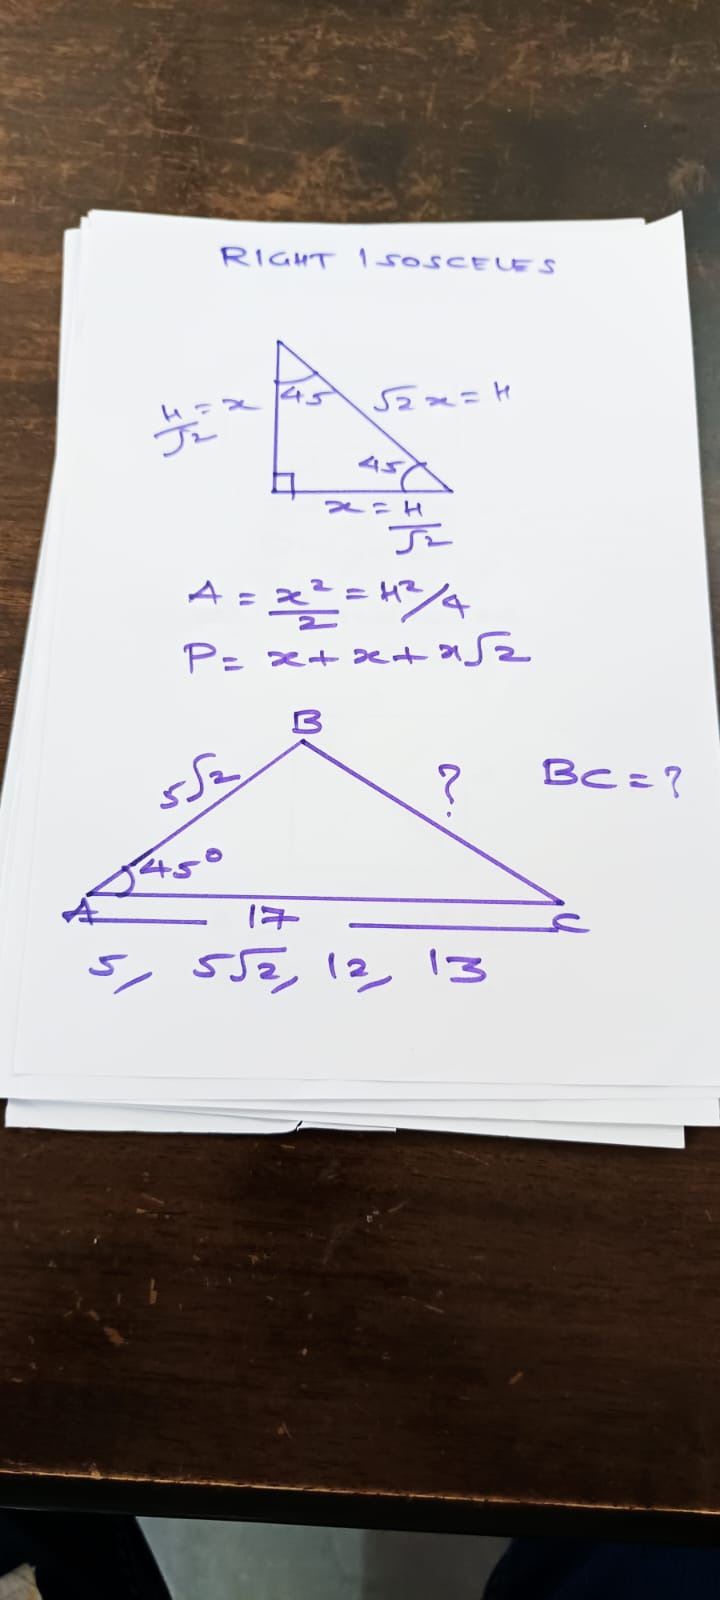 RIGHT ISOSCELES
45
H/√2 = x
√2 x = H
45
x = H/√2
A = x²/2 = H²/4
P = x + x + x√2
B
5√2
?
BC = ?
45°
A
17
C
5, 5√2, 12, 13